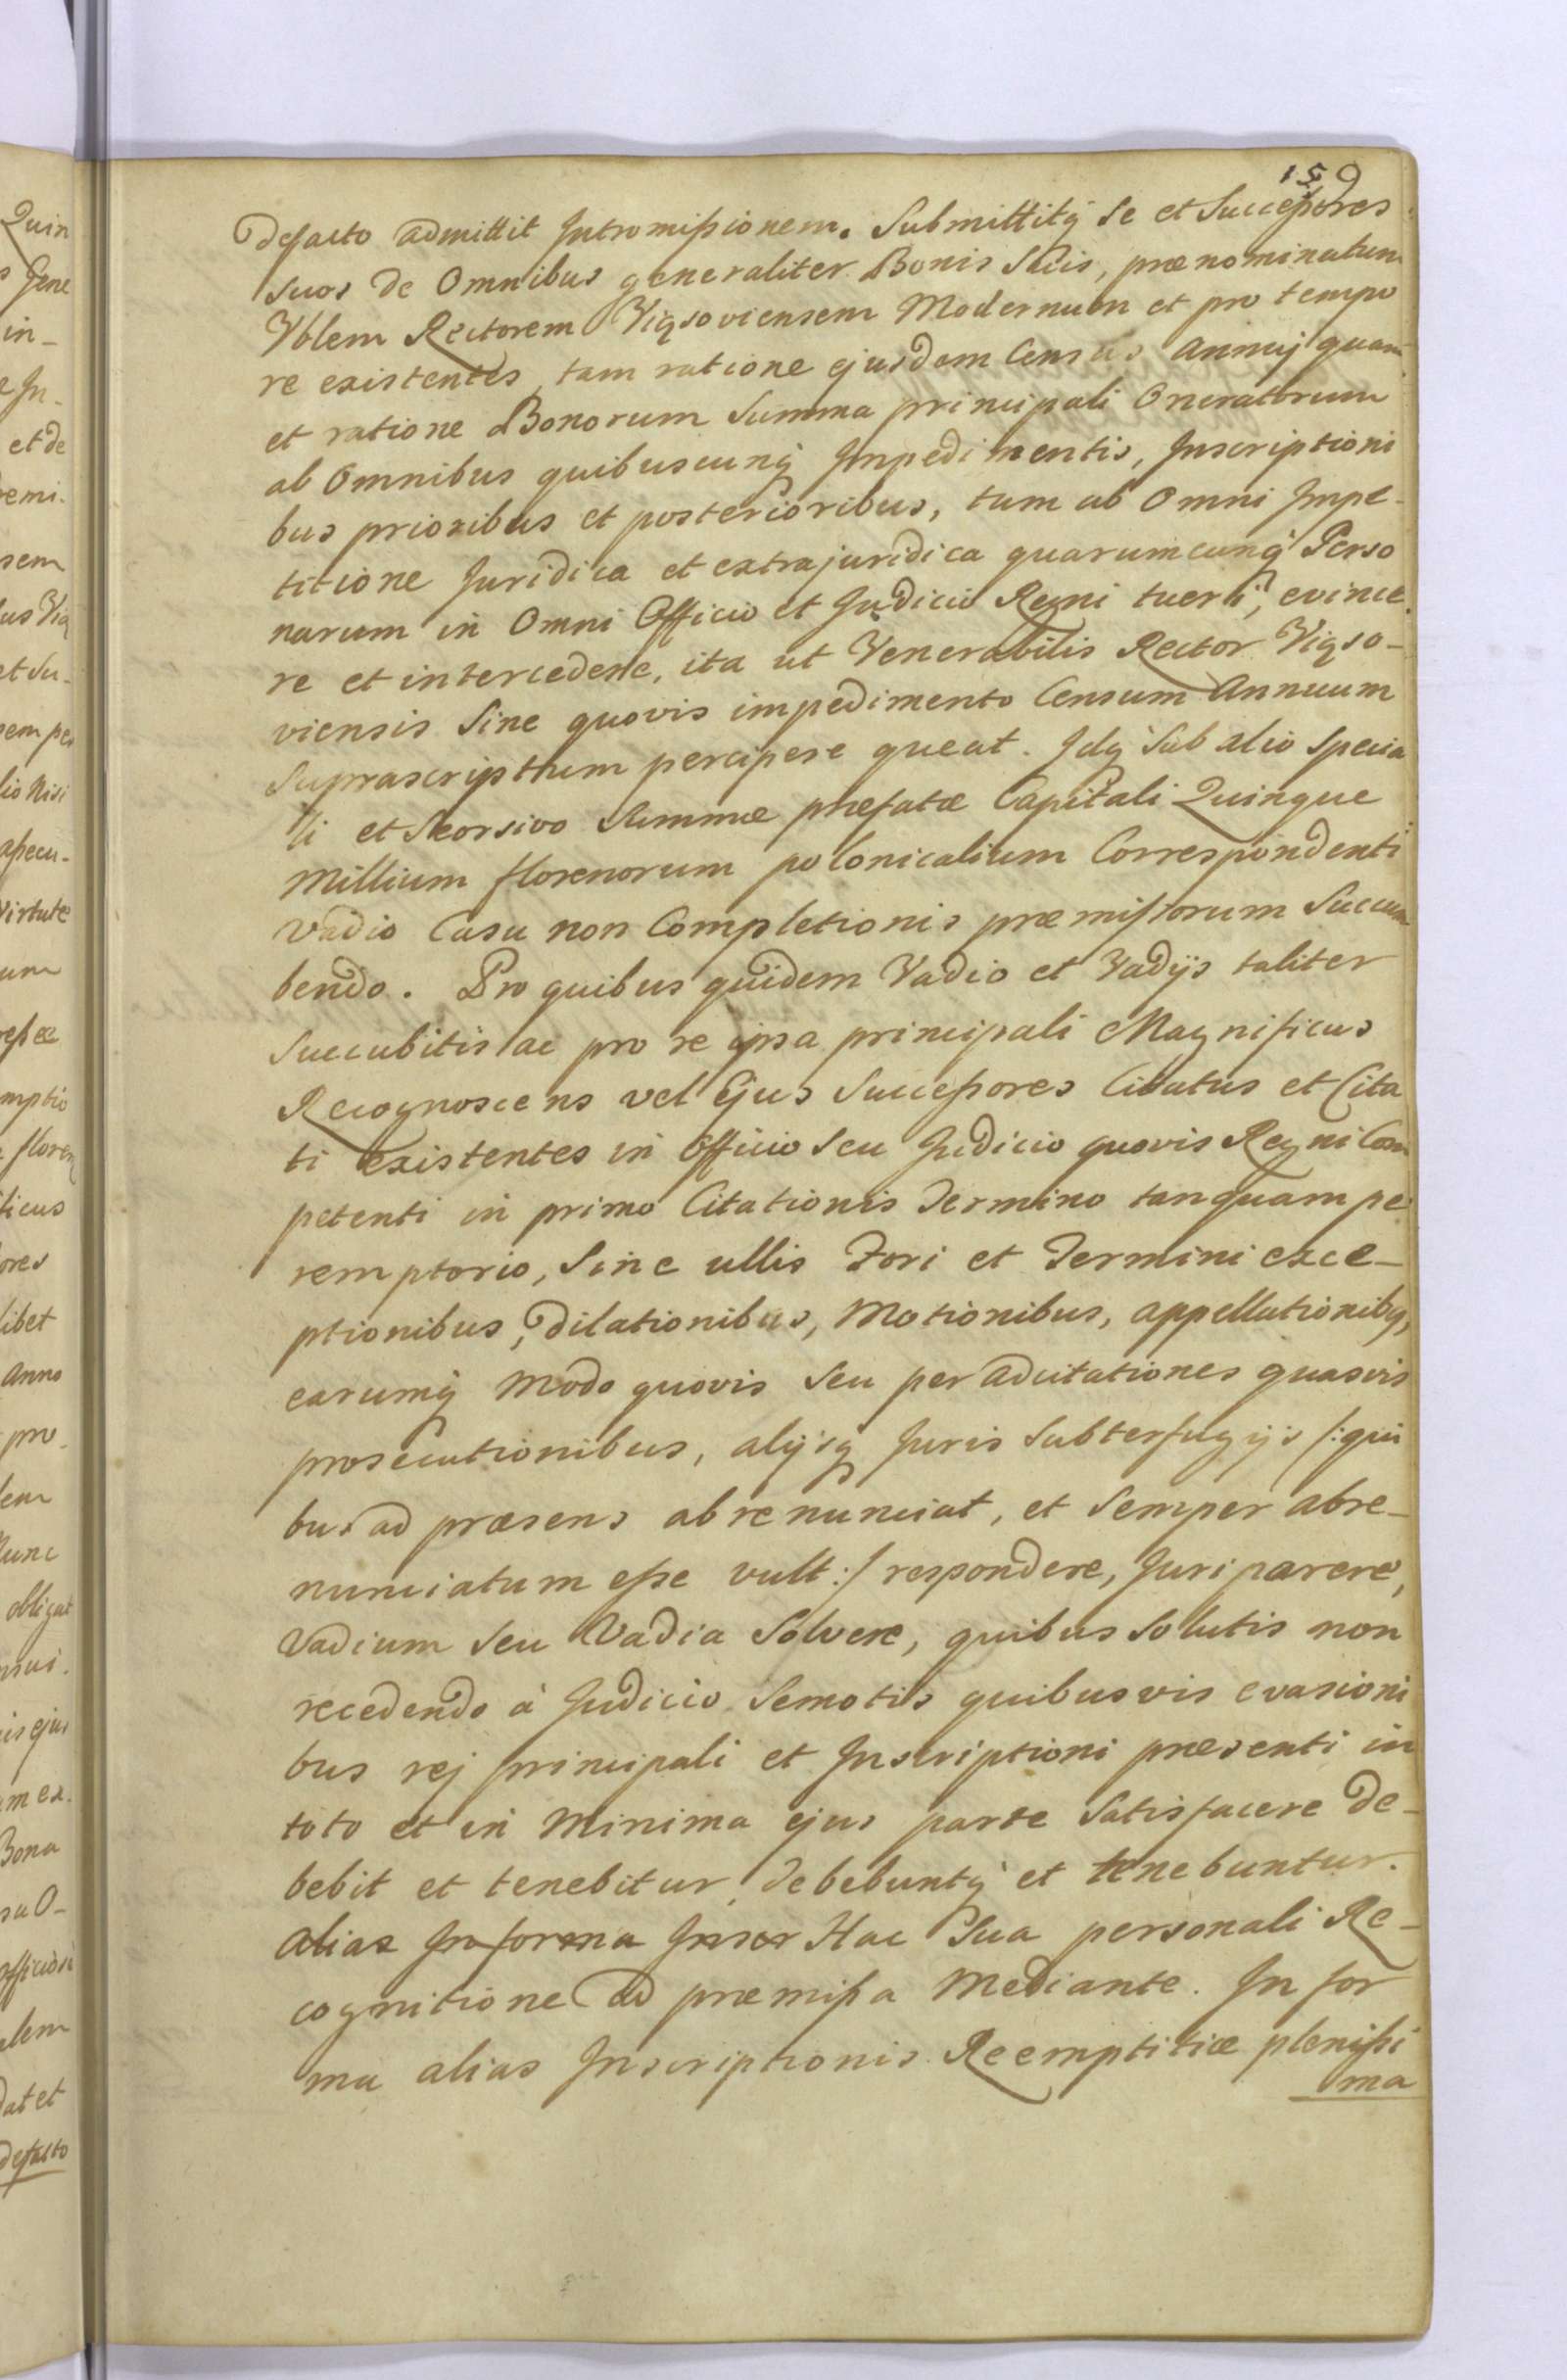 159
defacto admittit Intromissionem. Submittitq se et Successores
suos de Omnibus generaliter Bonis Suis, prænominatum
Vblem Rectorem Viqsoviensem Modernum et pro tempo
re existentes, tam ratione ejusdem Census Annuj quam
et ratione Bonorum Summa principali Oneratorum
ab Omnibus quibuscunq Impedimentis, Inscriptioni
bus prioribus et posterioribus, tum ab Omni Impe-
titione Juridica et extrajuridica quarumcunq Perso
narum in Omni Officio et Judicio Regni tueri, evince
re et intercedere, ita ut Venerabilis Rector Viqso-
viensis Sine quovis impedimento Censum Annuum
Suprascriptum percipere queat. Idq Sub alio Specia
li et Seorsivo Summæ præfatæ Capitali Quinque
Millium florenorum polonicalium Correspondenti
Vadio Casu non Completionis præmissorum Succum
bendo. Pro quibus quidem Vadio et Vadijs taliter
Succubitis ac pro re ipsa principali Magnificus
Recognoscens vel Ejus Successores Citatus et Cita
ti existentes in Officio Seu Judicio quovis Regni Com
petenti in primo Citationis Termino tanquam pe
remptorio, Sine ullis Fori et Termini exce-
ptionibus, dilationibus, Motionibus, appellationibq,
earumq Modo quovis Seu per adcitationes quasvis
prosecutionibus, alijsq Juris Subterfugijs /:qui
bus ad præsens abrenunciat, et Semper abre-
nunciatum esse vult:/ respondere, Juri parere,
Vadium Seu Vadia Solvere, quibus Solutis non
recedendo à Judicio Semotis quibusvis evasioni
bus rej principali et Inscriptioni præsenti in
toto et in Minima ejus parte Satisfacere de-
bebit et tenebitur, debebuntq et tenebuntur.
alias In forma Inscr Hac Sua personali Re-
cognitione ad præmissa Mediante. In for
ma alias Inscriptionis Reemptitiæ plenissi
ma
Quin
Gene
in-
et de
sem
et Su-
lio Nisi
Virtute
mptio
floren
ticus
ores
libet
Anno
pro
lem
obligat
is ejus
Bona
dat et
defacto